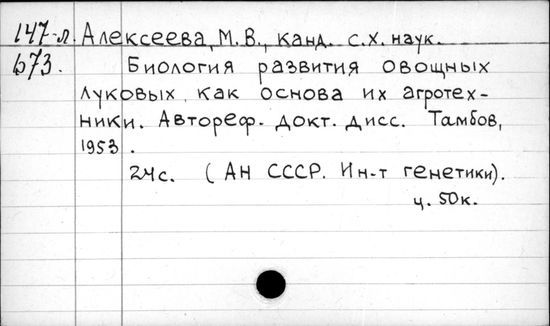 147-л. Алексеева, М.В., канд. с.х. наук.
673. Биология развития овощных
луковых как основа их агротех-
ники. Автореф. докт. дисс. Тамбов,
1953.
24с. (АН СССР. Ин-т генетики).
ц. 50к.